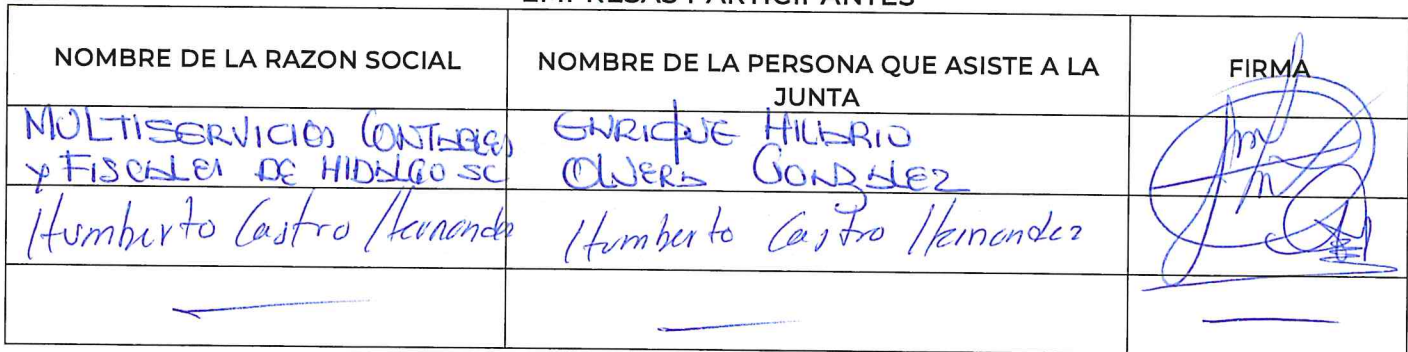 EMPRESAS PARTICIPANTES
NOMBRE DE LA RAZON SOCIAL
NOMBRE DE LA PERSONA QUE ASISTE A LA
JUNTA
FIRMA
MULTISERVICIOS CONTABLES
y FISCALES DE HIDALGO SC
ENRIQUE HILARIO
OLVERA GONZALEZ
Humberto Castro Hernandez
Humberto Castro Hernandez